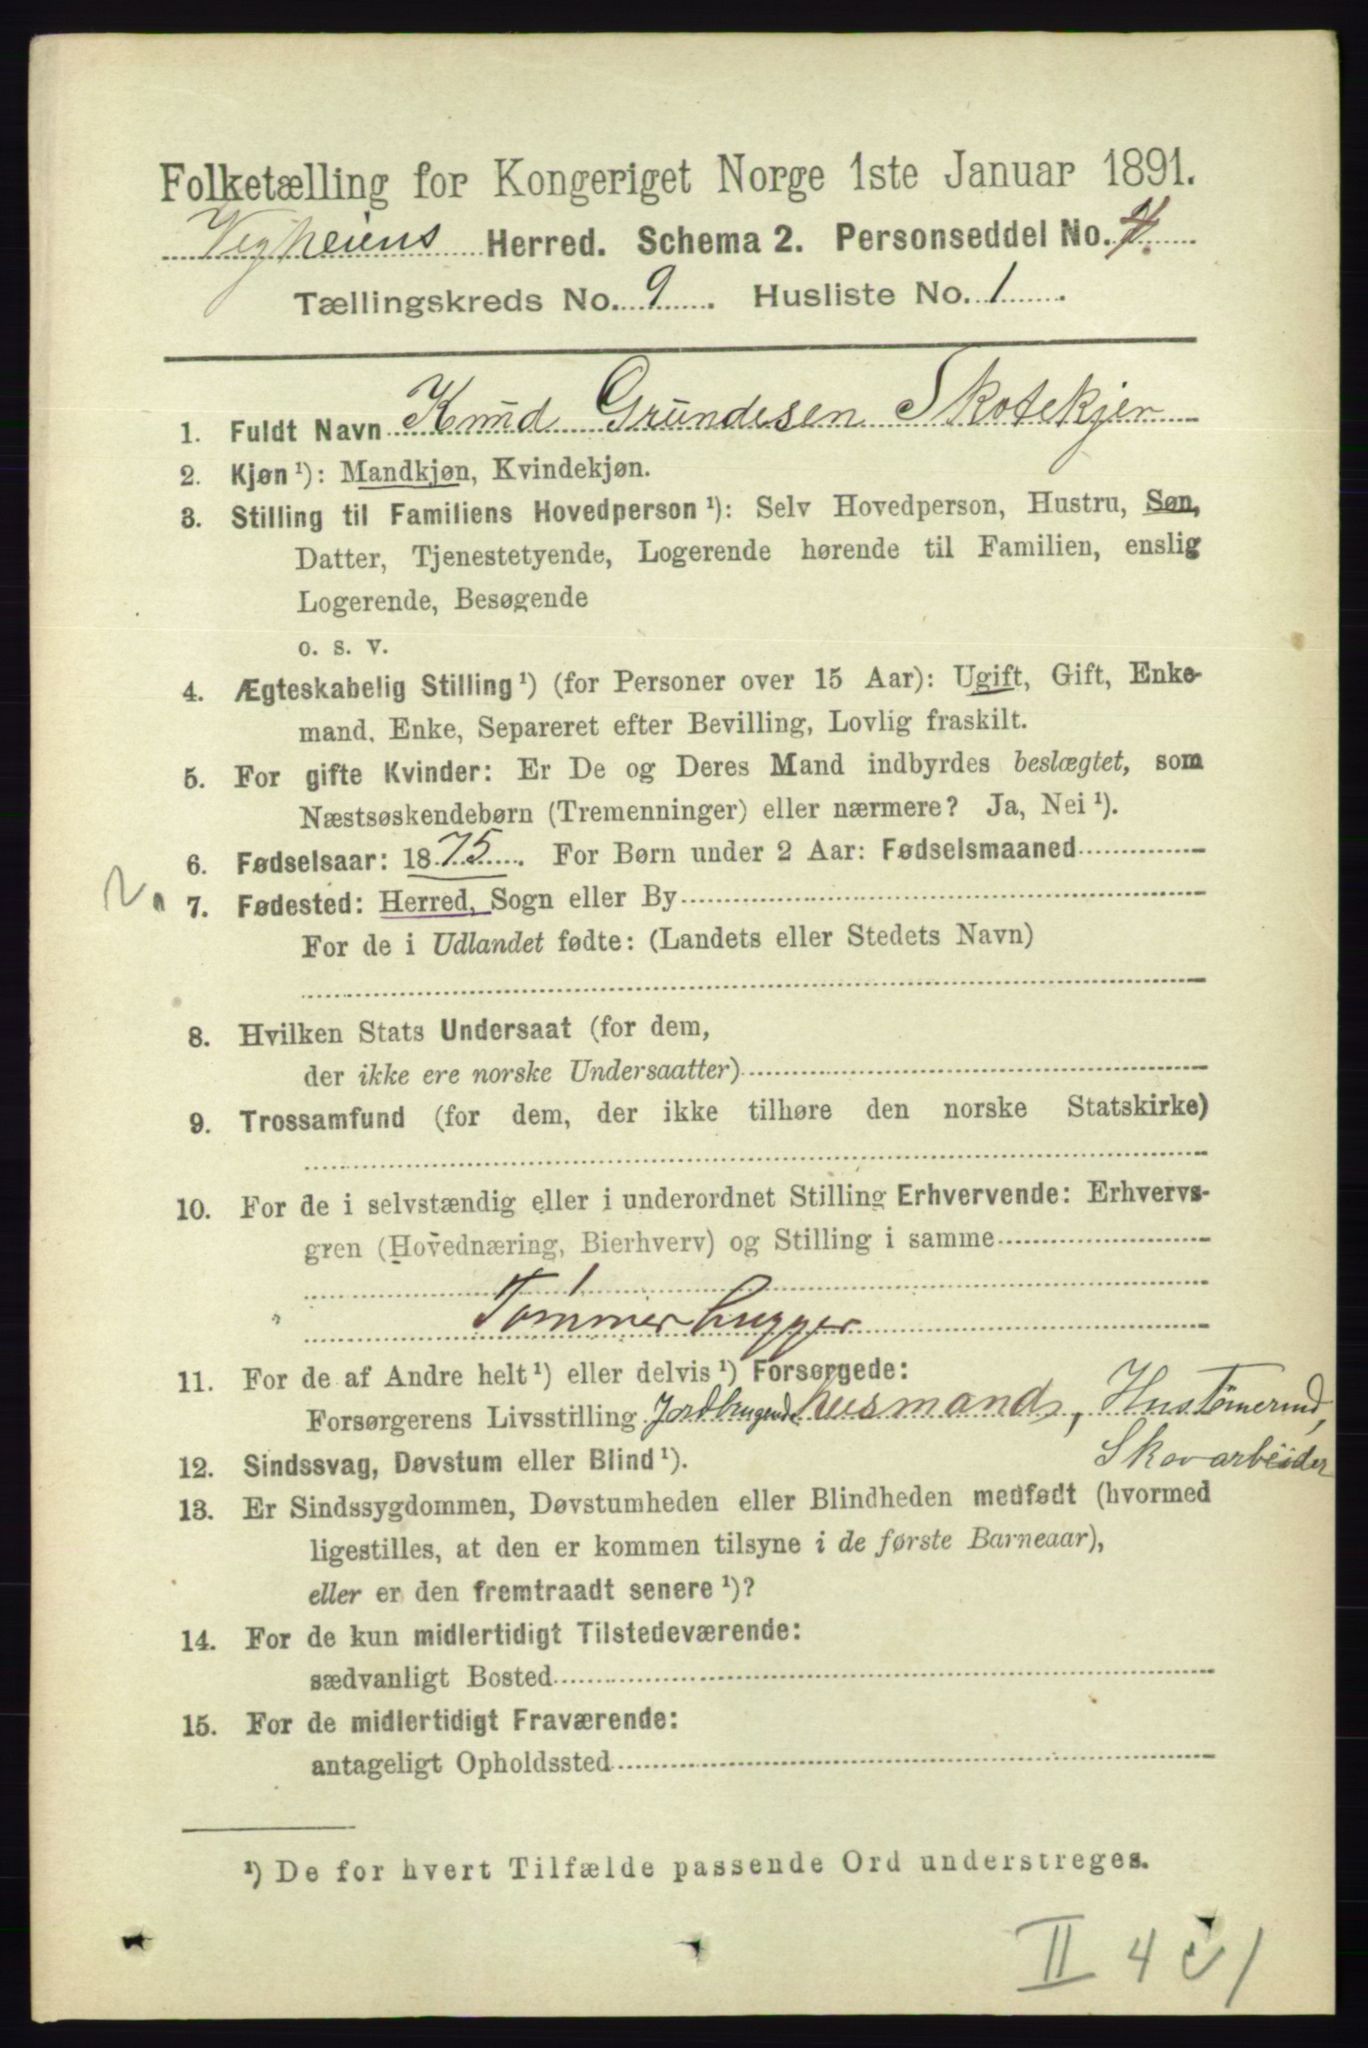 Folketælling for Kongeriget Norge 1ste Januar 1891.
Vegheiens Herred. Schema 2. Personseddel No. 4.
Tællingskreds No. 9. Husliste No. 1.
1. Fuldt Navn Knud Grundesen Skotekjer
2. Kjøn ¹): Mandkjøn, Kvindekjøn.
3. Stilling til Familiens Hovedperson ¹): Selv Hovedperson, Hustru, Søn,
Datter, Tjenestetyende, Logerende hørende til Familien, enslig
Logerende, Besøgende
o. s. v.
4. Ægteskabelig Stilling ¹) (for Personer over 15 Aar): Ugift, Gift, Enke-
mand, Enke, Separeret efter Bevilling, Lovlig fraskilt.
5. For gifte Kvinder: Er De og Deres Mand indbyrdes beslægtet, som
Næstsøskendebørn (Tremenninger) eller nærmere? Ja, Nei ¹).
6. Fødselsaar: 1875. For Børn under 2 Aar: Fødselsmaaned
N. 7. Fødested: Herred, Sogn eller By
For de i Udlandet fødte: (Landets eller Stedets Navn)
8. Hvilken Stats Undersaat (for dem,
der ikke ere norske Undersaatter)
9. Trossamfund (for dem, der ikke tilhøre den norske Statskirke)
10. For de i selvstændig eller i underordnet Stilling Erhvervende: Erhvervs-
gren (Hovednæring, Bierhverv) og Stilling i samme
Tømmerhugger
11. For de af Andre helt ¹) eller delvis ¹) Forsørgede:
Forsørgerens Livsstilling Jordbrugende husmand,
Skovarbeider
12. Sindssvag, Døvstum eller Blind ¹).
13. Er Sindssygdommen, Døvstumheden eller Blindheden medfødt (hvormed
ligestilles, at den er kommen tilsyne i de første Barneaar),
eller er den fremtraadt senere ¹)?
14. For de kun midlertidigt Tilstedeværende:
sædvanligt Bosted
15. For de midlertidigt Fraværende:
antageligt Opholdssted
¹) De for hvert Tilfælde passende Ord understreges.
II 4